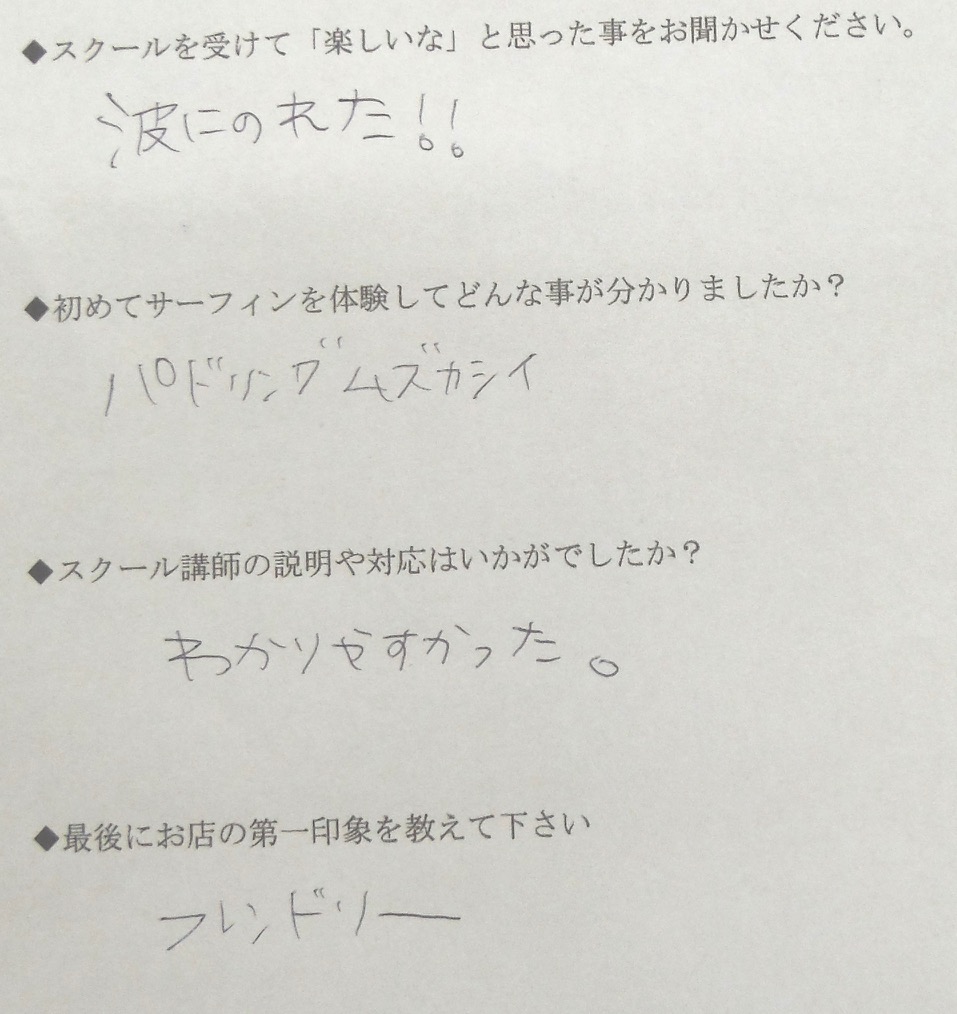 ◆スクールを受けて「楽しいな」と思った事をお聞かせください。
波にのれた!!
◆初めてサーフィンを体験してどんな事が分かりましたか？
パドリングムズカシイ
◆スクール講師の説明や対応はいかがでしたか？
わかりやすかった。
◆最後にお店の第一印象を教えて下さい
フレンドリー